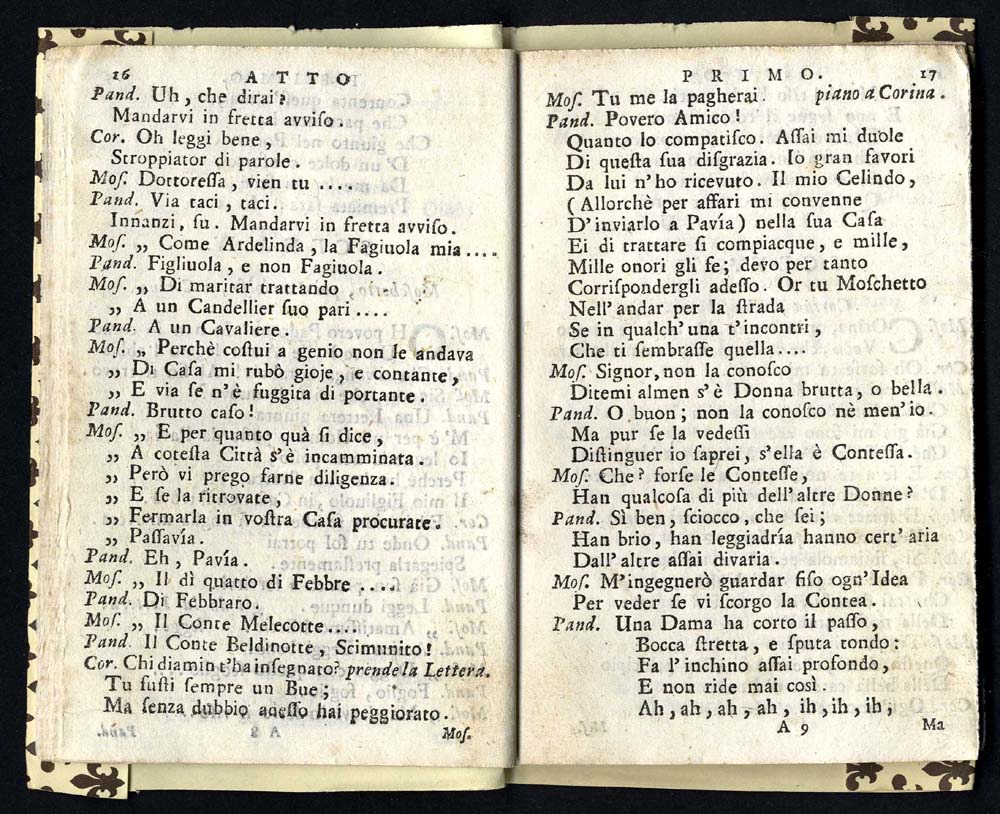 16 ATTO
Pand. Uh, che dirai?
Mandarvi in fretta avviſo.
Cor. Oh leggi bene,
Stroppiator di parole.
Moſ. Dottoreſſa, vien tu ....
Pand. Via taci, taci.
Innanzi, ſu. Mandarvi in fretta avviſo.
Moſ. „ Come Ardelinda, la Fagiuola mia ....
Pand. Figliuola, e non Fagiuola.
Moſ. „ Di maritar trattando
„ A un Candellier ſuo pari ....
Pand. A un Cavaliere.
Moſ. „ Perchè coſtui a genio non le andava
„ Di Caſa mi rubò gioje, e contante,
„ E via ſe n'è fuggita di portante.
Pand. Brutto caſo!
Moſ. „ E per quanto quà ſi dice,
„ A coteſta Città s'è incamminata.
„ Però vi prego farne diligenza.
„ E ſe la ritrovate,
„ Fermarla in voſtra Caſa procurate.
„ Paſſavía.
Pand. Eh, Pavía.
Moſ. „ Il dì quatto di Febbre ....
Pand. Di Febbraro.
Moſ. „ Il Conte Melecotte ....
Pand. Il Conte Beldinotte, Scimunito!
Cor. Chi diamin t'ha inſegnato? prende la Lettera.
Tu fuſti ſempre un Bue;
Ma ſenza dubbio adeſſo hai peggiorato.
A 8 Moſ.
PRIMO. 17
Moſ. Tu me la pagherai. piano a Corina.
Pand. Povero Amico!
Quanto lo compatiſco. Aſſai mi duole
Di queſta ſua diſgrazia. Io gran favori
Da lui n'ho ricevuto. Il mio Celindo,
(Allorchè per affari mi convenne
D'inviarlo a Pavía) nella ſua Caſa
Ei di trattare ſi compiacque, e mille,
Mille onori gli fe; devo per tanto
Corriſpondergli adeſſo. Or tu Moſchetto
Nell'andar per la ſtrada
Se in qualch'una t'incontri,
Che ti ſembraſſe quella....
Moſ. Signor, non la conoſco
Ditemi almen s'è Donna brutta, o bella.
Pand. O buon; non la conoſco nè men'io.
Ma pur ſe la vedeſſi
Diſtinguer io ſaprei, s'ella è Conteſſa.
Moſ. Che? forſe le Conteſſe,
Han qualcoſa di più dell'altre Donne?
Pand. Sì ben, ſciocco, che ſei;
Han brio, han leggiadría hanno cert'aria
Dall'altre aſſai divaria.
Moſ. M'ingegnerò guardar fiſo ogn'Idea
Per veder ſe vi ſcorgo la Contea.
Pand. Una Dama ha corto il paſſo,
Bocca ſtretta, e ſputa tondo:
Fa l'inchino aſſai profondo,
E non ride mai così.
Ah, ah, ah, ah, ih, ih, ih,
A 9 Ma